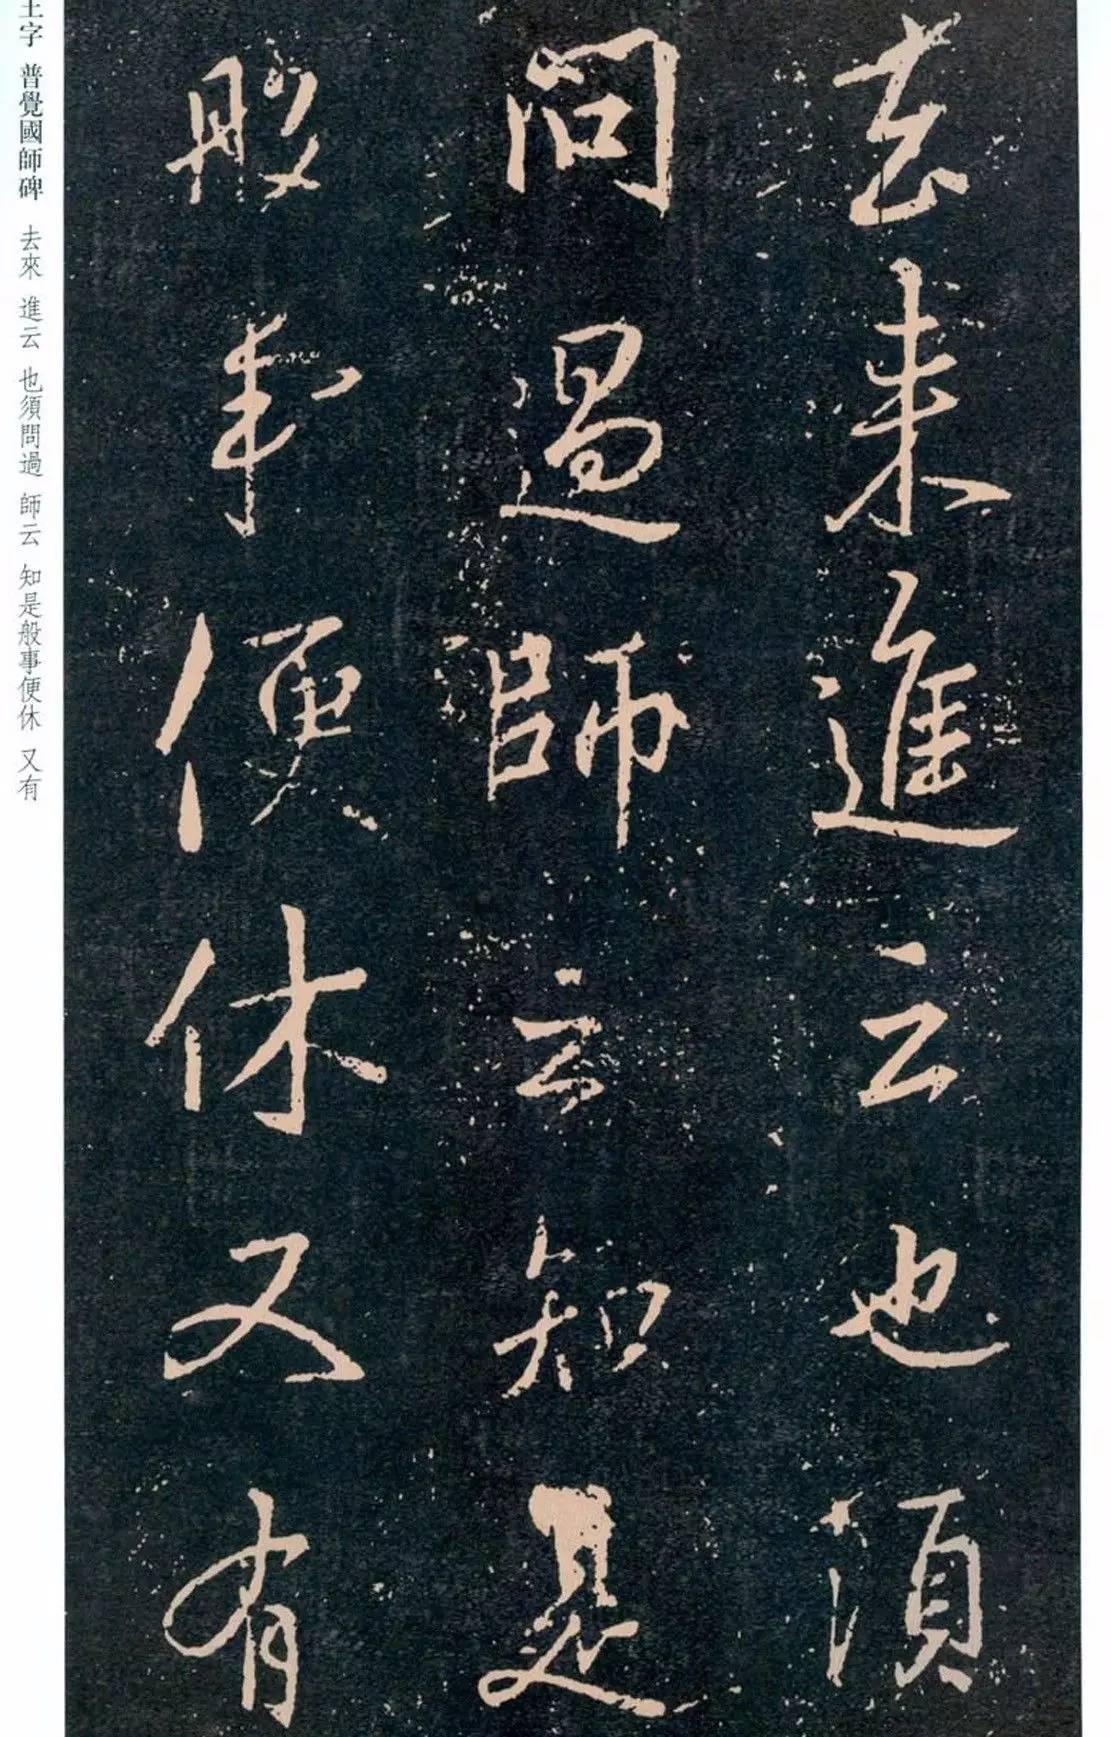 去来進云也須
問過師云知是
般事便休又有
王字 普覺國師碑 去來 進云 也須問過 師云 知是般事便休 又有